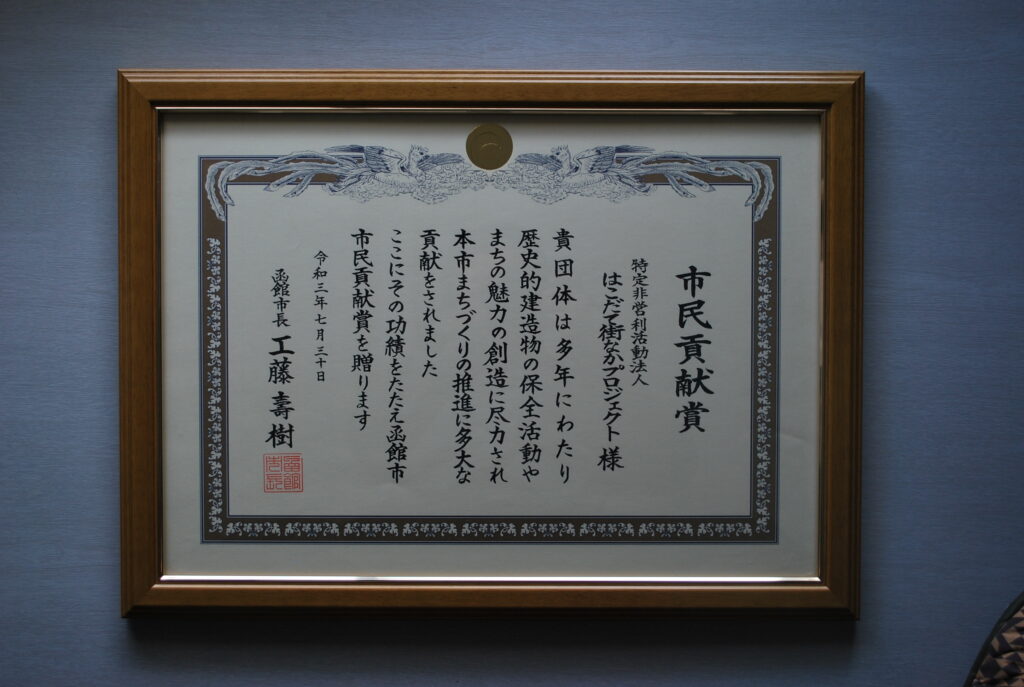 市民貢献賞
特定非営利活動法人
はこだて街なかプロジェクト様
貴団体は多年にわたり
歴史的建造物の保全活動や
まちの魅力の創造に尽力され
本市まちづくりの推進に多大な
貢献をされました
ここにその功績をたたえ函館市
市民貢献賞を贈ります
令和三年七月三十日
函館市長 工藤壽樹